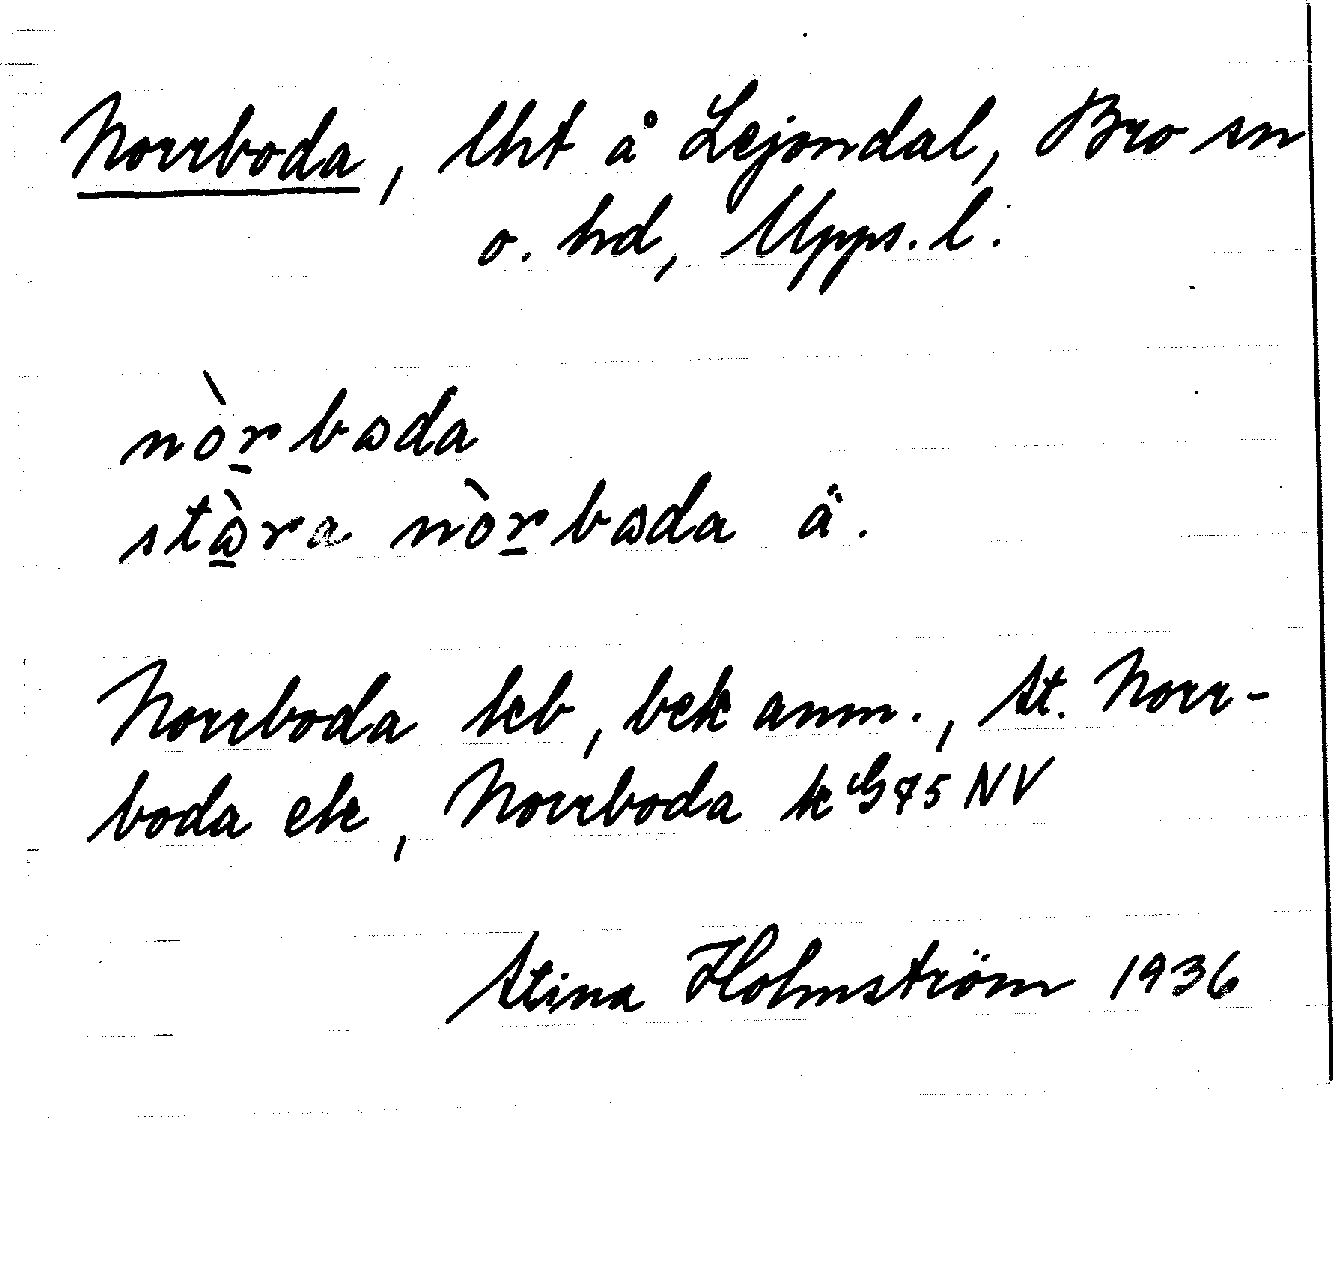 Norrboda, lht å Lejondal, Bro sn
o. hd, Upps. l.
nòr̲bωda
stὼ̲ra nòr̲bωda å.
Norrboda kb, bek anm., St. Norr-
boda ek, Norrboda k G 75 NV
Stina Holmström 1936